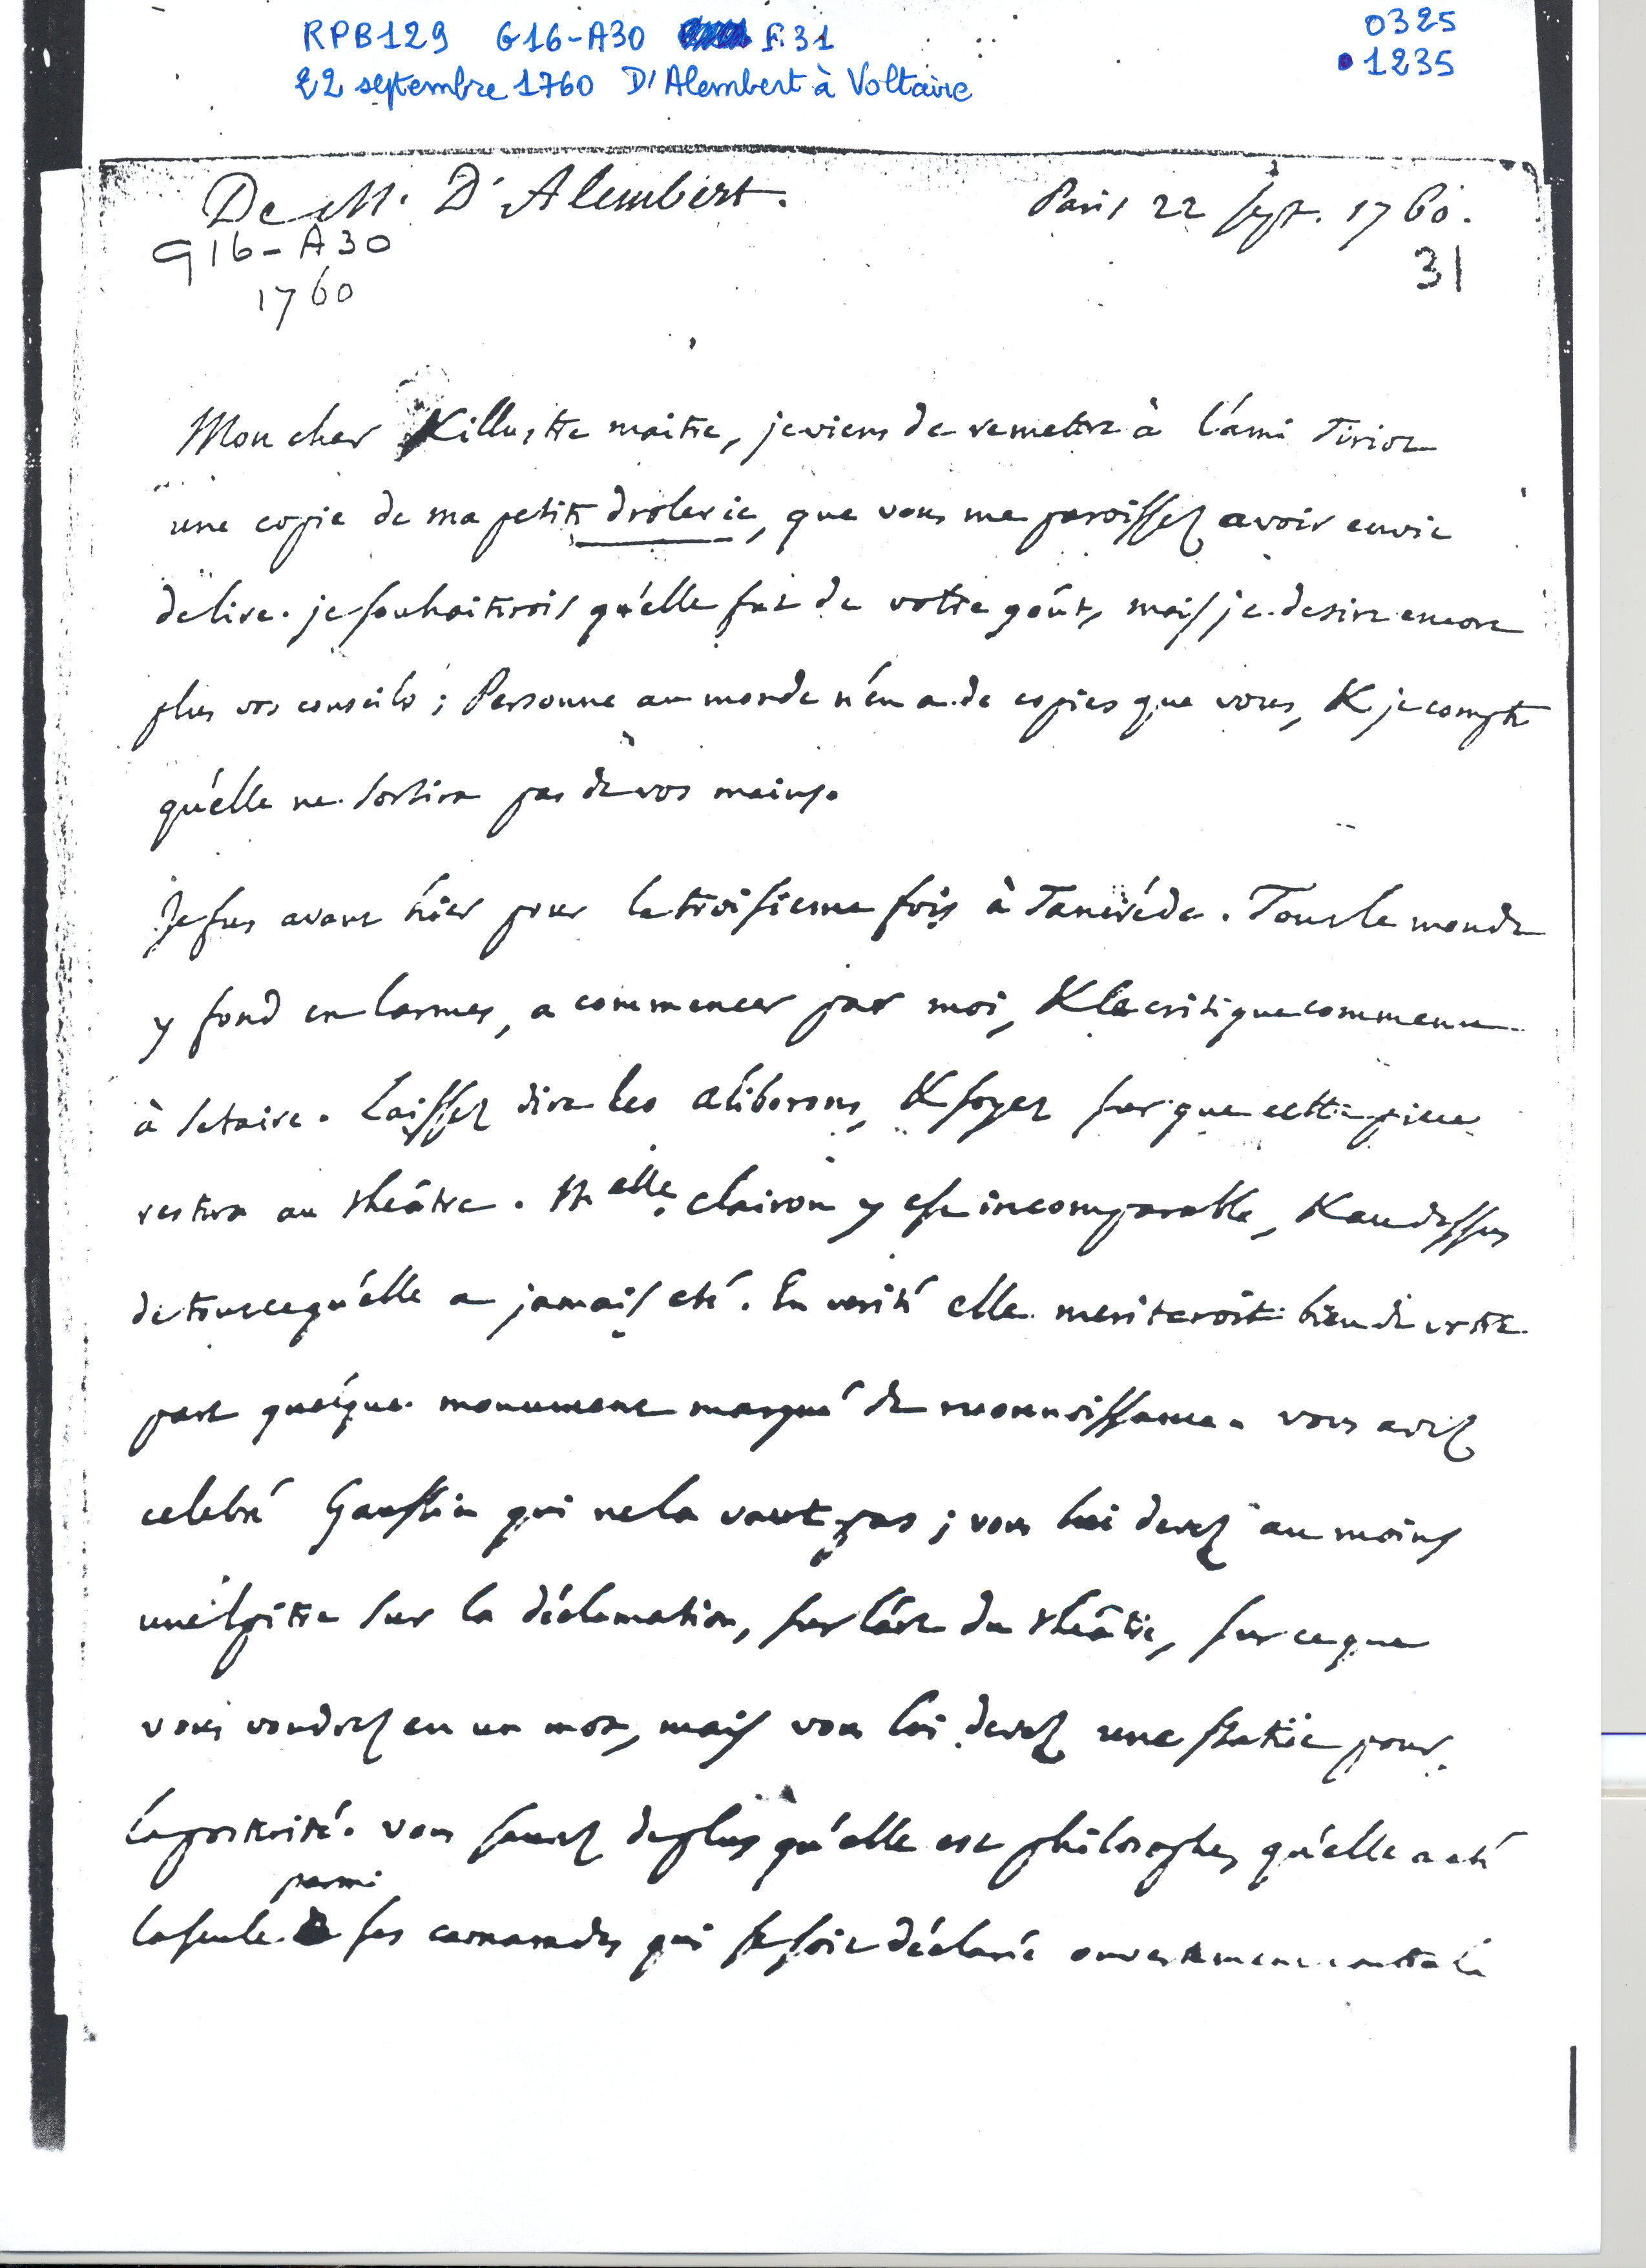 RPB129 G16-A30 F.31
0325
22 septembre 1760 D'Alembert à Voltaire
1235
De M. D'Alembert.
Paris 22 sept. 1760.
G16-A30
31
1760
Mon cher & illustre maitre, je viens de remettre à l'ami Tiriot
une copie de ma petite drolerie, que vous me paroissez avoir envie
de lire. je souhaiterois qu'elle fut de votre goût, mais je desire encore
plus vos conseils ; Personne au monde n'en a de copies que vous, & je compte
qu'elle ne sortira pas de vos mains.
Je fus avant hier pour la troisieme fois à Tancrède. Tout le monde
y fond en larmes, a commencer par moi, & la critique commence
à se taire. laissez dire les aliborons, & soyez sur que cette piece
restera au théâtre. Melle. clairon y est incomparable, & au dessus
de tout ce qu'elle a jamais eté. En verité elle meriteroit bien de votre
part quelque monument marqué de reconnoissance. vous avez
celebré Gaussin qui ne la vaut pas ; vous lui devez au moins
une épitre sur la déclamation, sur l'art du théâtre, sur ce que
vous voudrez en un mot, mais vous lui devez une statüe pour
la posterité. vous saurez de plus qu'elle est philosophe, qu'elle a eté
parmi
la seule ses camarades qui se soit déclarée ouvertement contre la